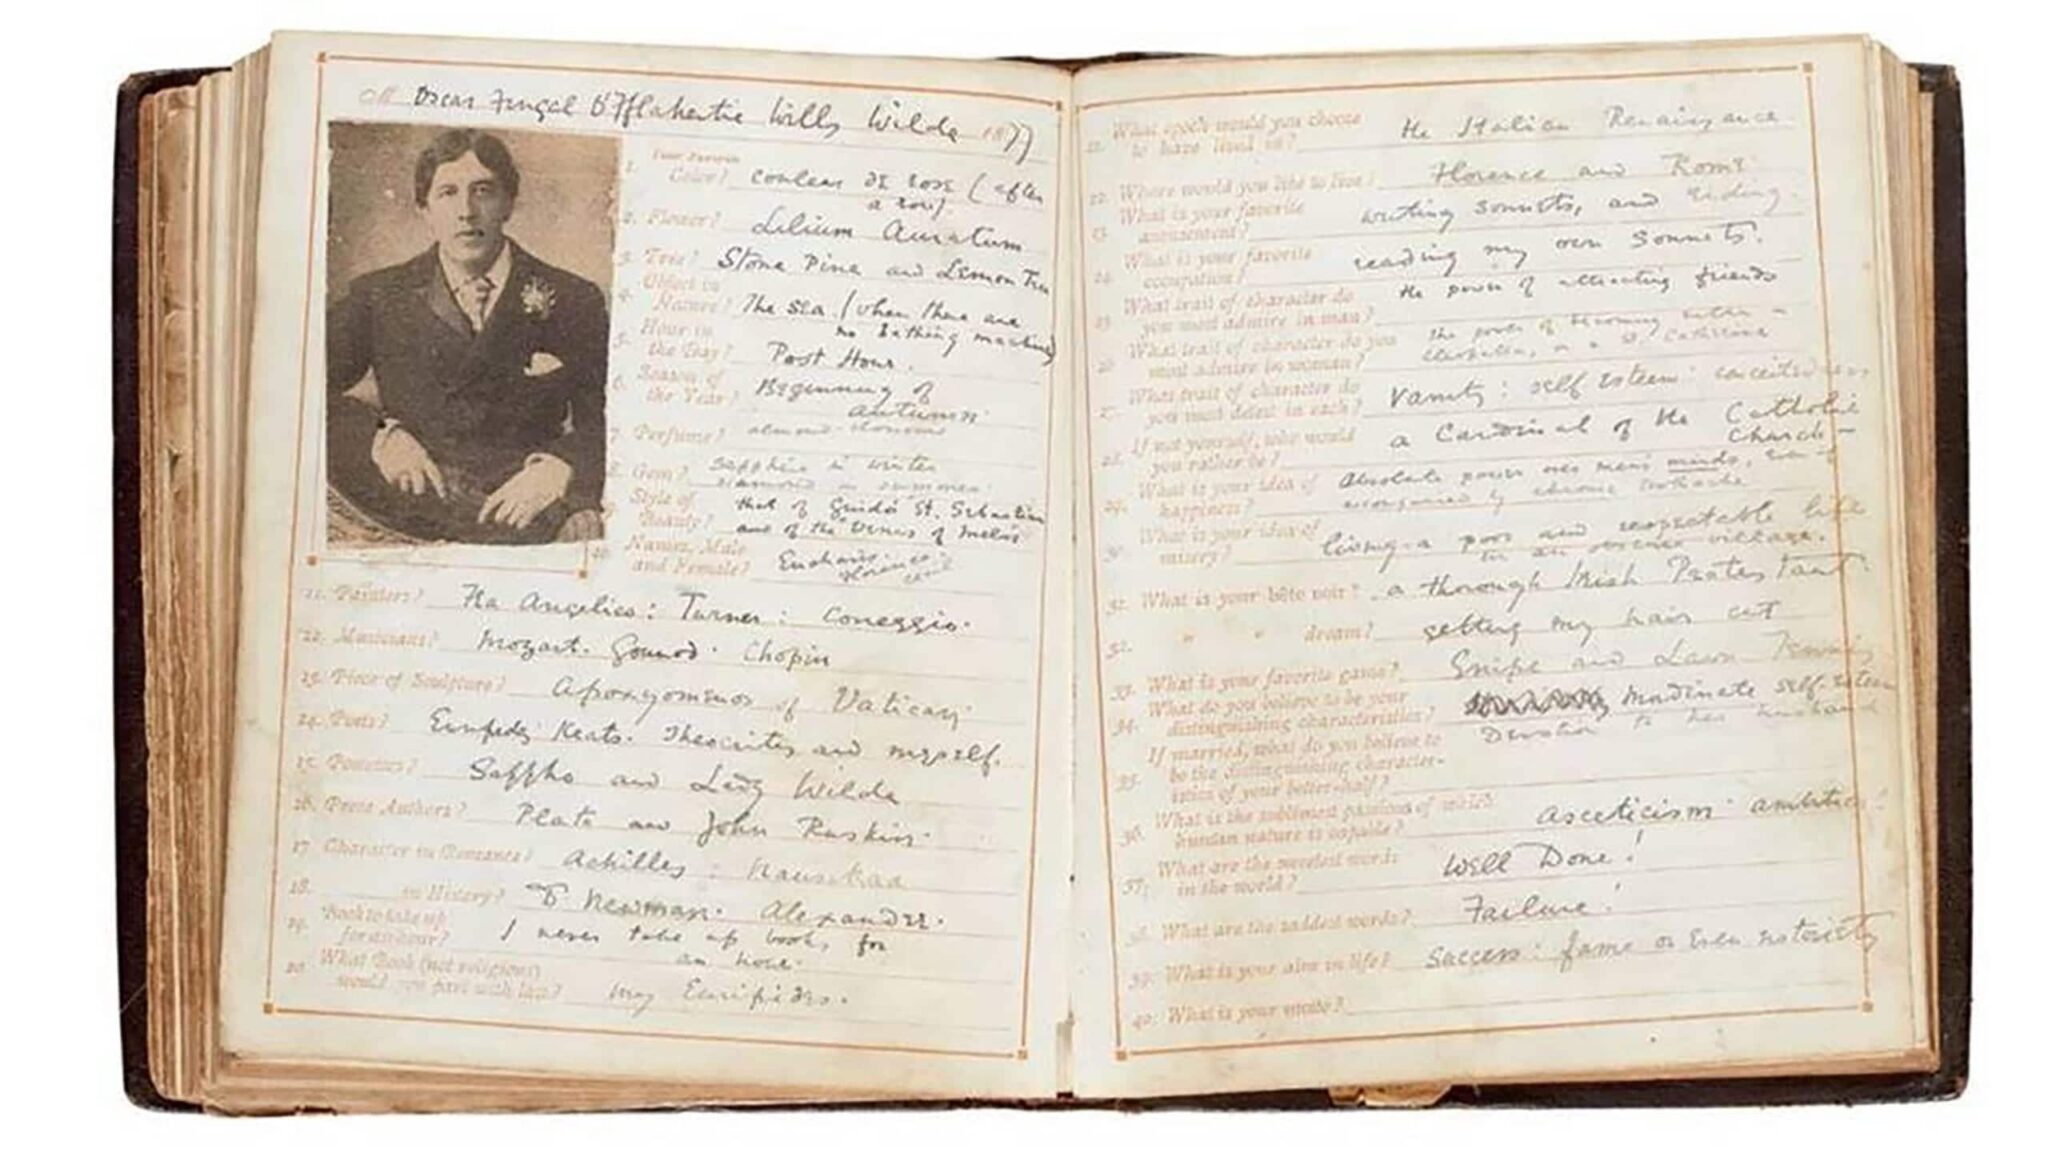 Oscar Fingal O'Fflahertie Wills Wilde 1877
1. Your Favorite
Color? couleur de rose (after
a row).
2. Flower? Lilium Auratum
3. Tree? Stone Pine and Lemon Tree
4. Object in
Nature? The sea (when there are
no bathing machines)
5. Hour in
the Day? Post Hour.
6. Season of
the Year? Beginning of
autumn
7. Perfume? almond
8. Gem? sapphire in winter
diamond in summer
9. Style of
Beauty? that of Guido's St. Sebastian
and of the Venus of Melos
10. Names, Male
and Female? Eucharis. Florence
11. Painters? Fra Angelico: Turner: Correggio.
12. Musicians? Mozart. Gounod. Chopin
13. Piece of Sculpture? Apoxyomenos of Vatican
14. Poets? Euripides Keats. Theocritus and myself.
15. Poetesses? Sappho and Lady Wilde
16. Prose Authors? Plato and John Ruskin.
17. Character in Romance? Achilles: Nausikaa
18. in History? Dr Newman. Alexander.
19. Book to take up
for an hour? I never take up books for
an hour.
20. What Book (not religious)
would you part with last? my Euripides.
21. What epoch would you choose
to have lived in? the Italian Renaissance.
22. Where would you like to live? Florence and Rome
23. What is your favorite
amusement? writing sonnets, and
24. What is your favorite
occupation? reading my own sonnets.
25. What trait of character do
you most admire in man? the power of attracting friends
26. What trait of character do you
most admire in woman? the power of becoming either a
Cleopatra, or a St. Catherine
27. What trait of character do
you most detest in each? Vanity: self esteem: conceitedness,
28. If not yourself, who would
you rather be? a Cardinal of the Catholic
Church –
29. What is your idea of
happiness? Absolute power over men's minds, even if
accompanied by chronic toothache
30. What is your idea of
misery? living a poor and respectable life
in an obscure village.
31. What is your bête noir? a thorough Irish Protestant
32. " " dream? getting my hair cut
33. What is your favorite game? Snipe and Lawn Tennis
34. What do you believe to be your
distinguishing characteristics? Inordinate self-esteem
35. If married, what do you believe to
be the distinguishing character-
istics of your better-half? Devotion to her husband
36. What is the sublimest passion of which
human nature is capable? asceticism ambition
37. What are the sweetest words
in the world? Well Done!
38. What are the saddest words? Failure!
39. What is your aim in life? success: fame or even notoriety
40. What is your motto?